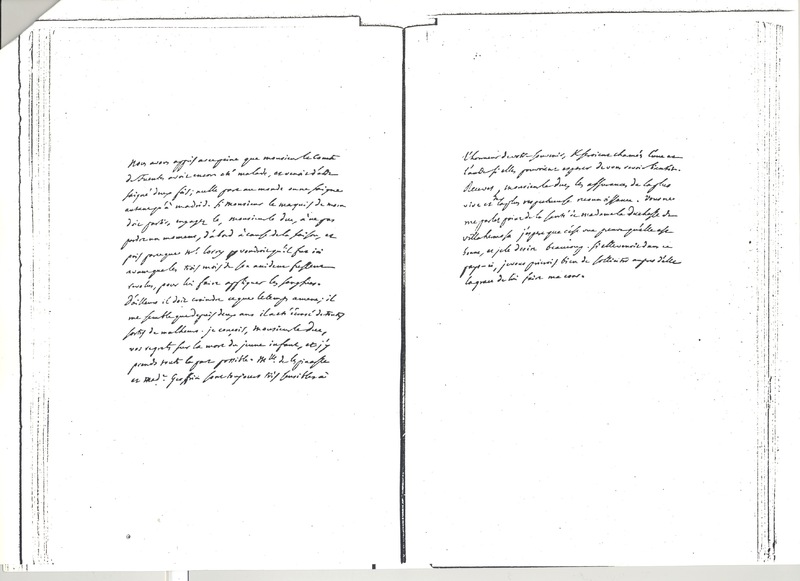 Nous avons appris avec peine que monsieur le Comte
de Fuentes avoit encore été malade, et venoit d'être
saigné deux fois; nulle part au monde on ne saigne
autant qu'à madrid. Si monsieur le marquis de mora
doit partir, engagez le, monsieur le duc, à ne pas
perdre un moment, d'abord à cause de la saison, et
puis parce que Mr. lorry voudroit qu'il fut ici
avant que les trois mois de son accident fussent
revolus, pour lui faire appliquer les sangsues.
D'ailleurs il doit craindre ce que le temps amene; il
me semble que depuis deux ans il a été écrasé de toutes
sortes de malheurs. je conçois, monsieur le duc,
vos regrets sur la mort du jeune infant, et j'y
prends toute la part possible. Mlle. de lespinasse
et Made. Geoffrin sont toujours très sensibles à
l'honneur de votre souvenir, et seroient charmées l'une et
l'autre si elles pouvoient esperer de vous revoir bientôt.
Recevez, monsieur le duc, les assurances de la plus
vive et de la plus respectueuse reconnoissance. Vous ne
me parlez point de la santé de madame la duchesse de
villahermosa j'espere que c'est une preuve qu'elle est
bonne, et je le desire beaucoup. Si elle venoit dans ce
pays-ci, je vous prierois bien de solliciter auprès d'elle
la grace de lui faire ma cour.